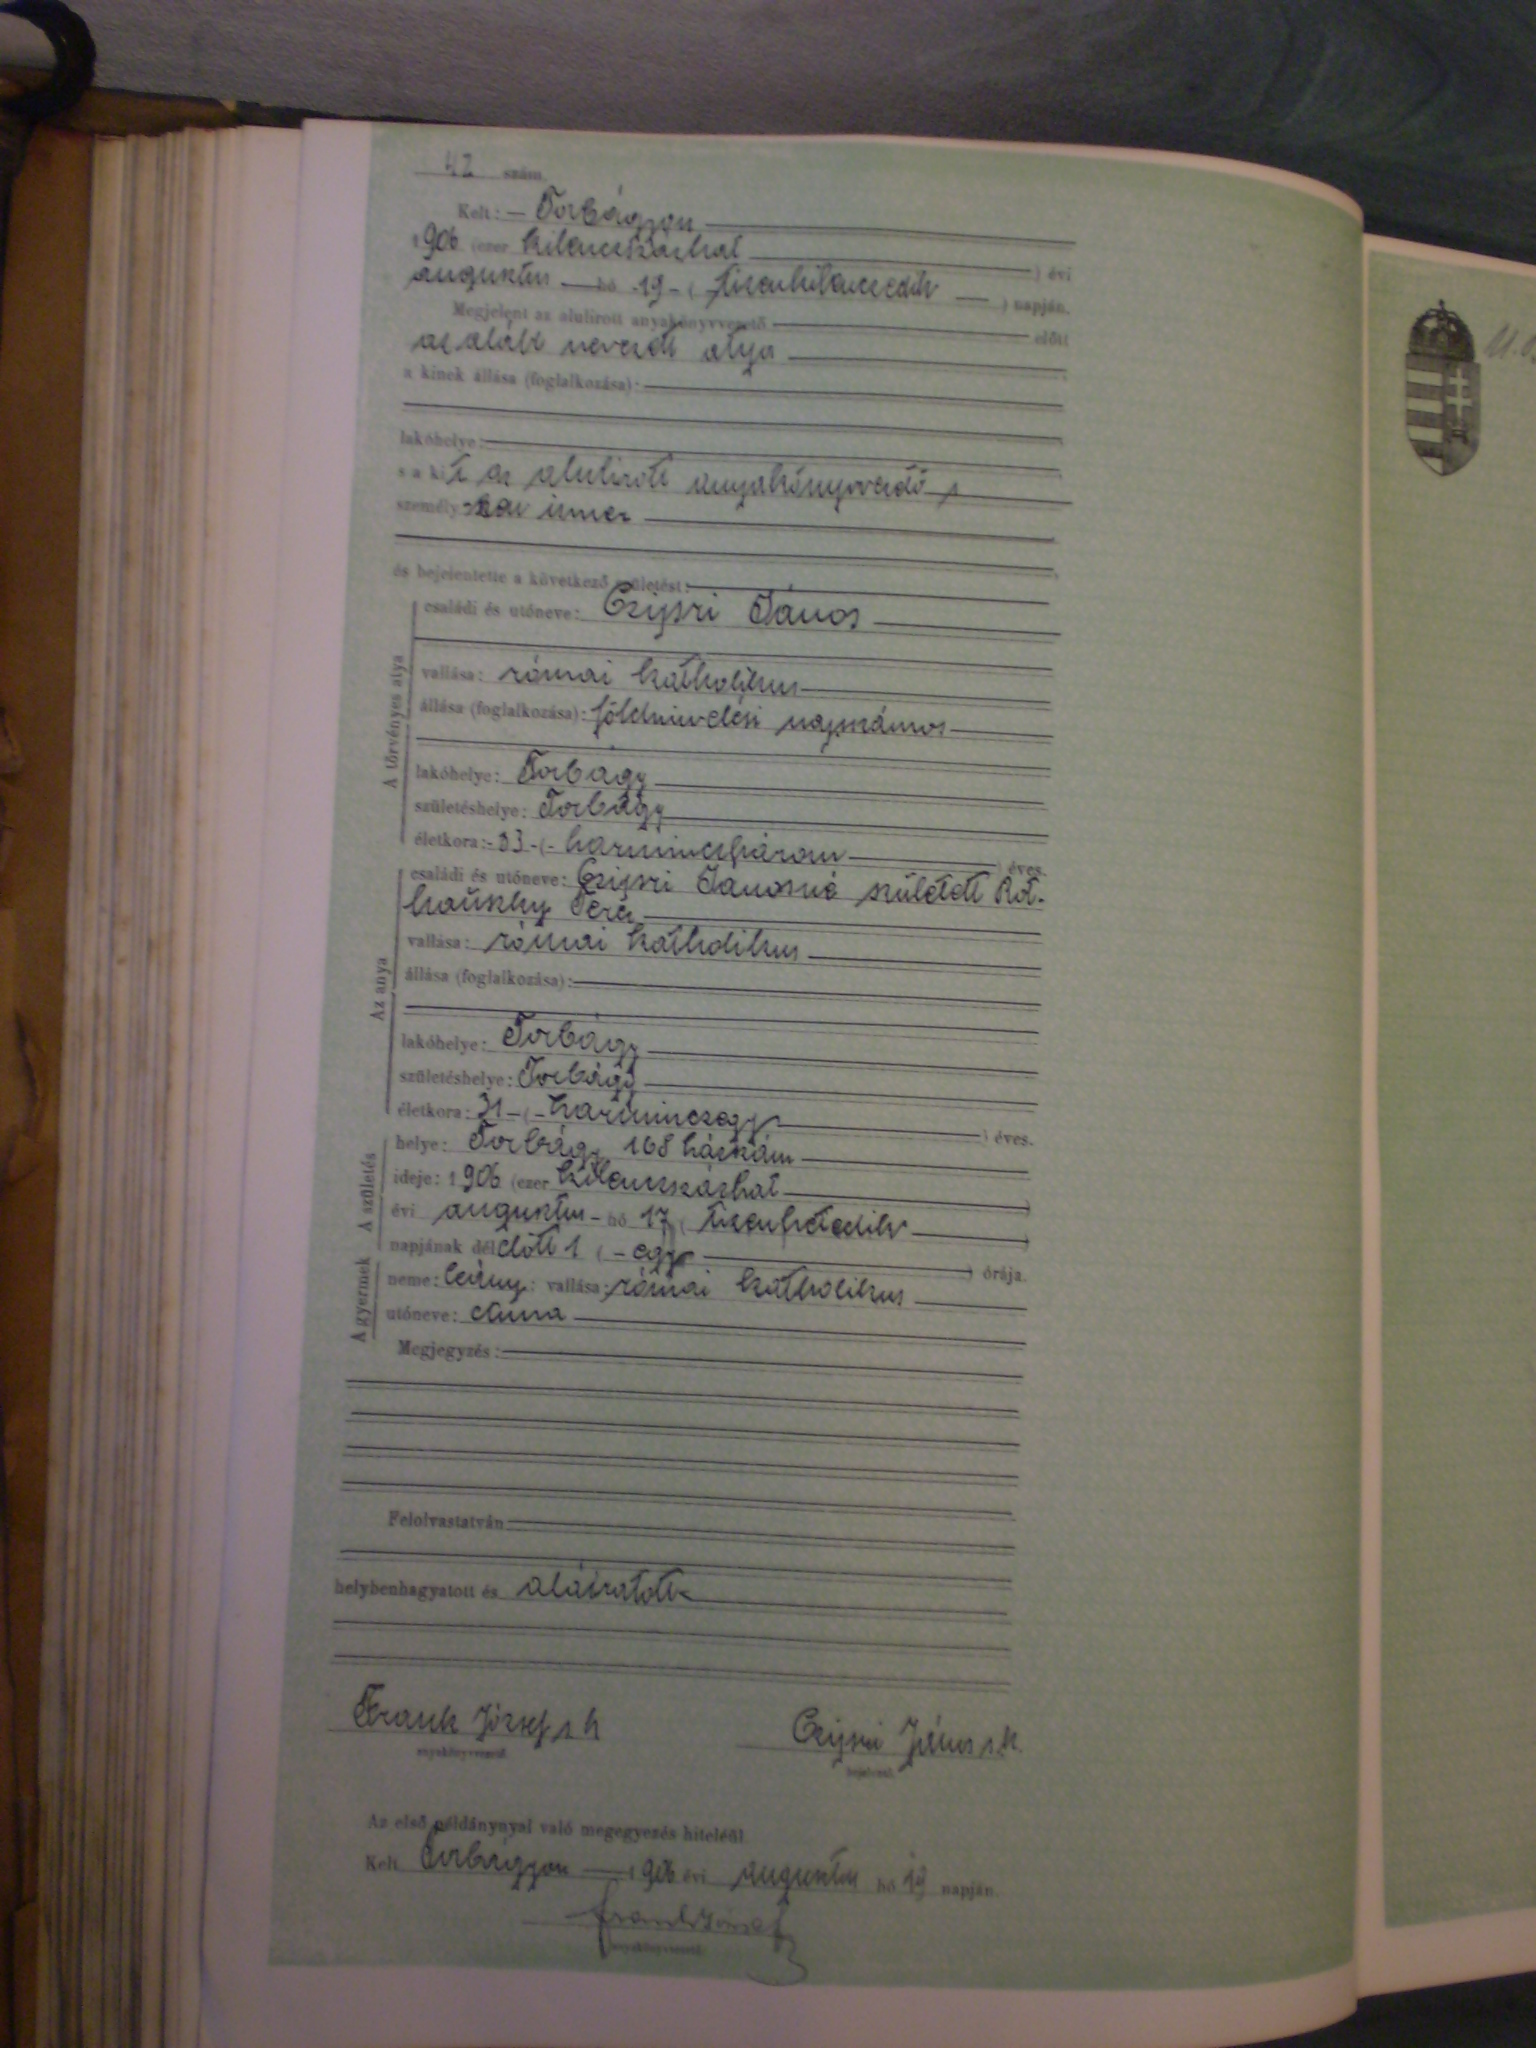 42 szám.
Kelt: – Torbágyon
1906 (ezer kilenczszázhat ) évi
augusztus hó -19- ( tizenkilenczedik ) napján.
Megjelent az alulirott anyakönyvvezető előtt
az alább nevezett atya
a kinek állása (foglalkozása):
lakóhelye:
s a kit az alulirott anyakönyvvezető
személyesen ismer
és bejelentette a következő születést:
A törvényes atya
családi és utóneve: Czipri János
vallása: római katholikus
állása (foglalkozása): földmivelési napszámos
lakóhelye: Torbágy
születéshelye: Torbágy
életkora: -33-(- harminczhárom ) éves.
Az anya
családi és utóneve: Czipri Jánosné született Rot-
Teréz
vallása: római katholikus
állása (foglalkozása):
lakóhelye: Torbágy
születéshelye: Torbágy
életkora: 31 -(- harminczegy ) éves.
A születés
helye: Torbágy 168 házszám
ideje: 1906 (ezer kilenczszázhat )
évi augusztus - hó 17 ( tizenhetedik )
napjának délelőtt 1 (- egy ) órája.
A gyermek
neme: leány; vallása: római katholikus
utóneve: Anna
Megjegyzés:
Felolvastatván
helybenhagyatott és aláiratott
Frank József s k Czipri János s.k.
anyakönyvvezető. bejelentő.
Az első példánynyal való megegyezés hiteléül
Kelt Torbágyon 1906 évi augusztus hó 19 napján.
Frank József
anyakönyvvezető.